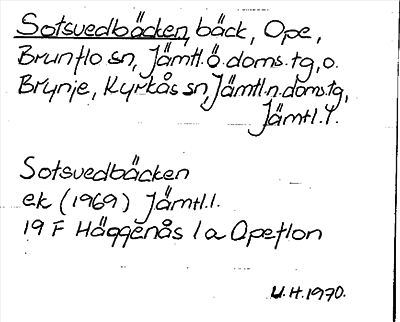 Sotsvedbäcken, bäck, Ope,
Brunflo sn, Jämtl.ö.doms.tg, o.
Brynje, Kyrkås sn, Jämtl.n.doms.tg,
Jämtl.l.
Sotsvedbäcken
ek (1969) Jämtl.l.
19 F Häggenås 1 a Opeflon
U.H.1970.